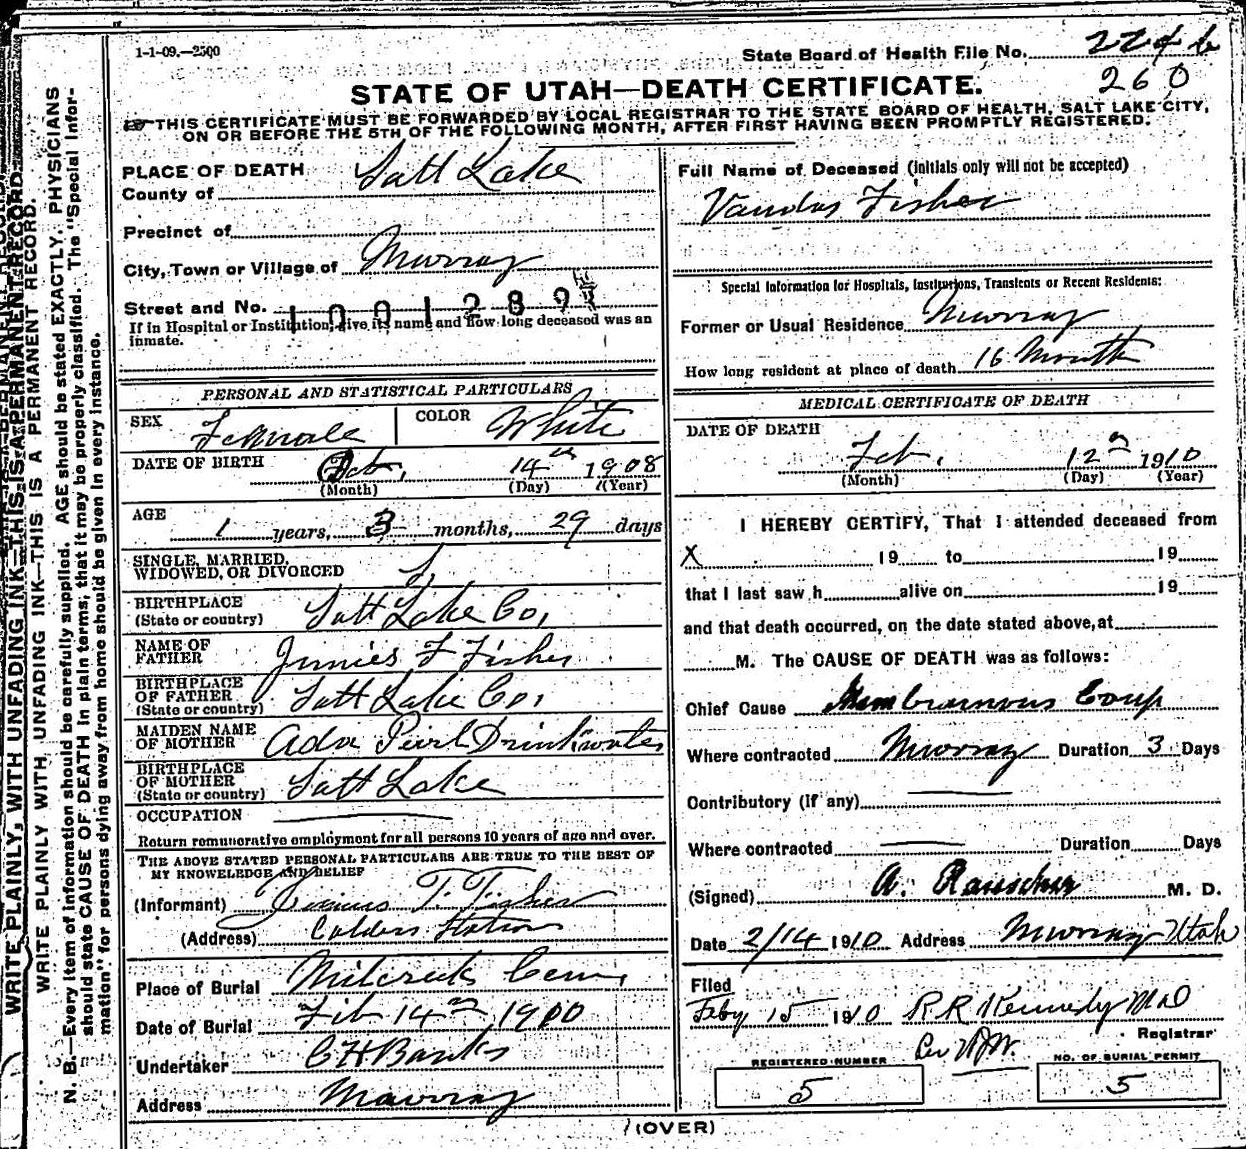 1-1-09.—2500
State Board of Health File No. 224 b
260
STATE OF UTAH—DEATH CERTIFICATE.
THIS CERTIFICATE MUST BE FORWARDED BY LOCAL REGISTRAR TO THE STATE BOARD OF HEALTH, SALT LAKE CITY,
ON OR BEFORE THE 5TH OF THE FOLLOWING MONTH, AFTER FIRST HAVING BEEN PROMPTLY REGISTERED.
PLACE OF DEATH
County of Salt Lake
Precinct of
City, Town or Village of Murray
Street and No. 1001289
If in Hospital or Institution, give its name and how long deceased was an
inmate.
PERSONAL AND STATISTICAL PARTICULARS
SEX Female COLOR White
DATE OF BIRTH Oct, 14th 1908
(Month) (Day) (Year)
AGE 1 years, 3 months, 29 days
SINGLE, MARRIED,
WIDOWED, OR DIVORCED S,
BIRTHPLACE
(State or country) Salt Lake Co,
NAME OF
FATHER Junies F Fisher
BIRTHPLACE
OF FATHER
(State or country) Salt Lake Co,
MAIDEN NAME
OF MOTHER Ada Pearl Drinkwater
BIRTHPLACE
OF MOTHER
(State or country) Salt Lake
OCCUPATION
Return remunerative employment for all persons 10 years of age and over.
THE ABOVE STATED PERSONAL PARTICULARS ARE TRUE TO THE BEST OF
MY KNOWLEDGE AND BELIEF
(Informant) Junius T. Fisher
(Address) Calders Station
Place of Burial Milcreek Cem,
Date of Burial Feb 14th 1910
Undertaker C H Banks
Address Murray
Full Name of Deceased (initials only will not be accepted)
Vandas Fisher
Special Information for Hospitals, Institutions, Transients or Recent Residents:
Former or Usual Residence Murray
How long resident at place of death 16 Month
MEDICAL CERTIFICATE OF DEATH
DATE OF DEATH
Feb, 12th 1910
(Month) (Day) (Year)
I HEREBY CERTIFY, That I attended deceased from
X 19 to 19
that I last saw h alive on 19
and that death occurred, on the date stated above, at
M. The CAUSE OF DEATH was as follows:
Chief Cause Membranous Coup
Where contracted Murray Duration 3 Days
Contributory (If any)
Where contracted Duration Days
(Signed) A. Rauscher M. D.
Date 2/14 1910 Address Murray Utah
Filed
Feby 15 1910 R R Kennedy MD
Registrar
REGISTERED NUMBER
5
NO. OF BURIAL PERMIT
5
(OVER)
WRITE PLAINLY, WITH UNFADING INK—THIS IS A PERMANENT RECORD.
WRITE PLAINLY WITH UNFADING INK—THIS IS A PERMANENT RECORD.
N. B.—Every item of information should be carefully supplied. AGE should be stated EXACTLY. PHYSICIANS
should state CAUSE OF DEATH in plain terms, that it may be properly classified. The "Special Infor-
mation" for persons dying away from home should be given in every instance.